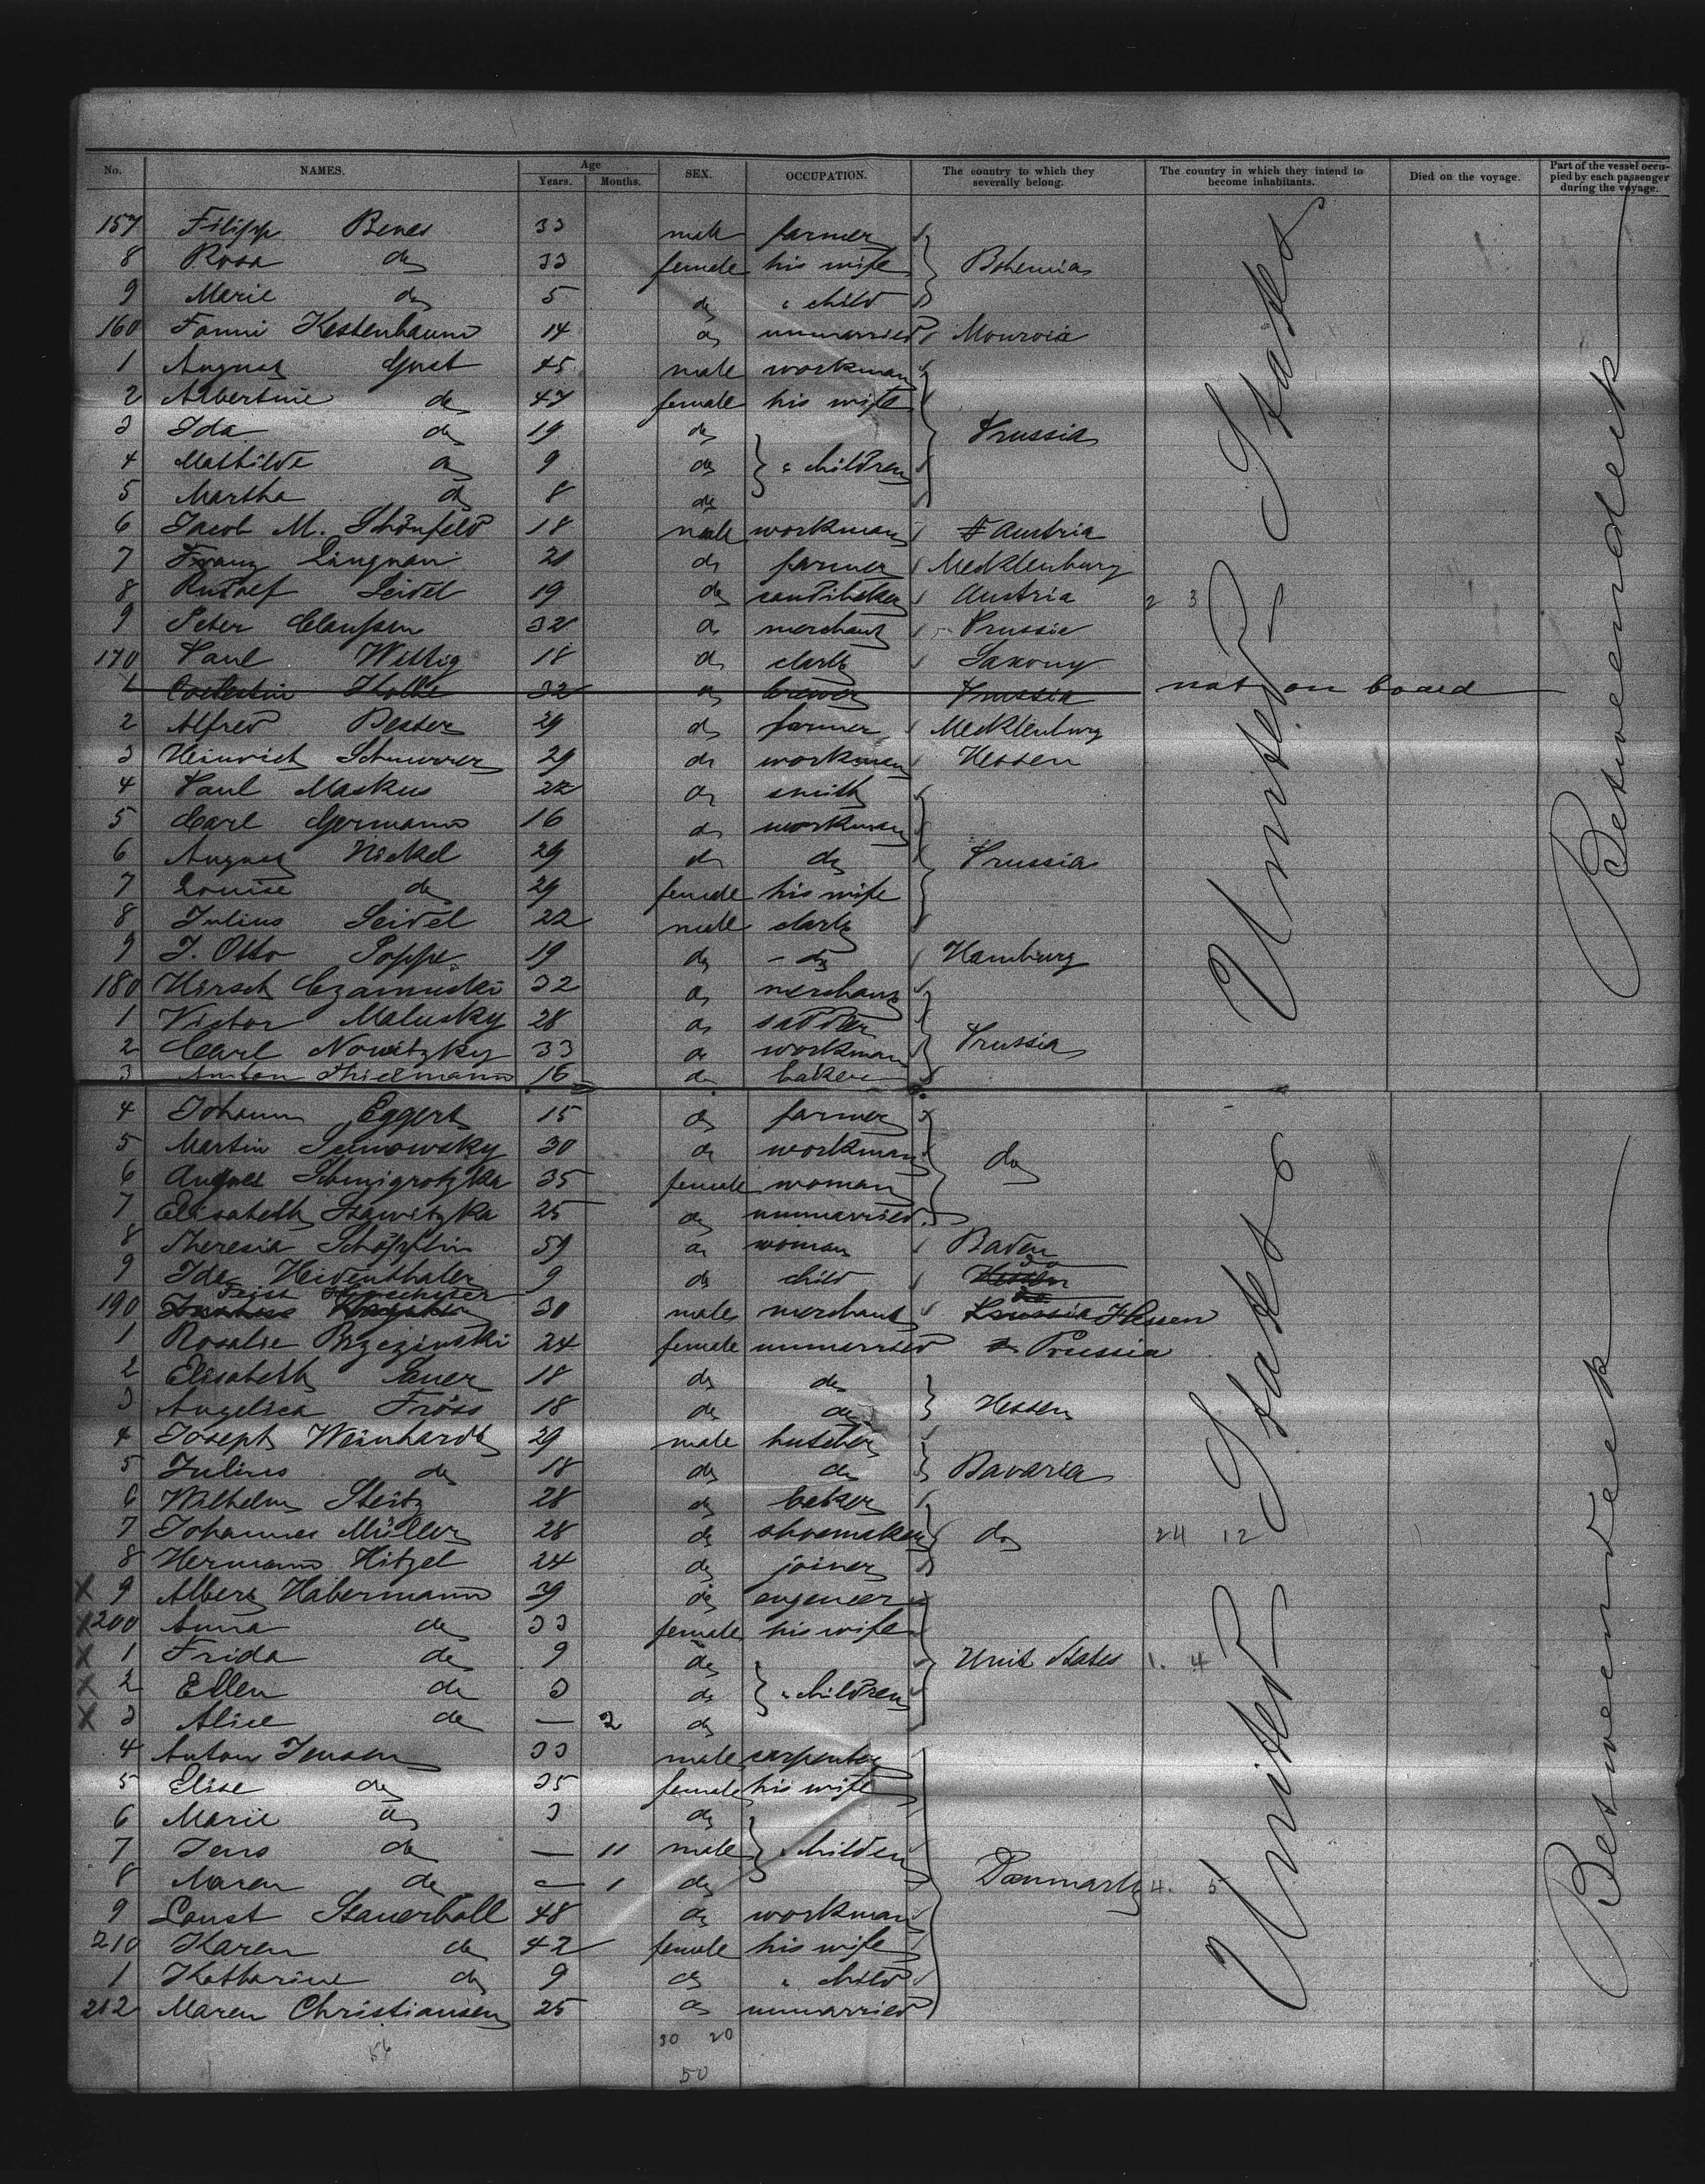 No. NAMES. Age Years. Months. SEX. OCCUPATION. The country to which they severally belong. The country in which they intend to become inhabitants. Died on the voyage. Part of the vessel occupied by each passenger during the voyage.
157 Filipp Benes 33 male farmer
8 Rosa do 33 female his wife Bohemia
9 Marie do 5 do " child
160 Fanni Kestenbaum 14 do unmarried
1 August Gust 45 male workman
2 Albertine do 47 female his wife
3 Ida do 19 do Prussia
4 Mathilde do 9 do " children
5 Martha do 8 do
6 Jacob M. Schönfeld 18 male workman Austria
7 Franz Lingnau do farmer Mecklenburg
8 Rudolf Seidel 19 do Austria 2 3
9 Peter Claussen 32 do merchant Prussia
170 Paul Wittig 18 do clark Saxony
1 Kolbe 32 do brewer Prussia not on board
2 Alfred Pester 29 do farmer Mecklenburg
3 Heinrich 29 do workman Hessen
4 Paul Maskus 22 do smith
5 Carl Germann 16 do workman
6 August Nickel 29 do do Prussia
7 Louise do 29 female his wife
8 Julius Seidel 22 male clark
9 J. Otto Poppe 19 do do Hamburg
180 Hirsch 32 do merchant
1 Victor Malusky 28 do sadler
2 Carl Nowitzky 33 do workman Prussia
3 Anton Thielmann 16 do baker
United States
Betweendeck
4 Johann Eggert 15 do farmer
5 Martin 30 do workman do
6 Schmigrotzka 35 female woman
7 Elisabeth Stawitzka 25 do unmarried
8 Theresia Schöpflin 59 do woman Baden
9 Ida Heidenthaler 9 do child do Hessen
Feist
190 30 male merchant Prussia Hessen
1 Rosalie Brzezinski 24 female unmarried Prussia
2 Elisabeth Sauer 18 do do
3 Angelica Fröss 18 do do Hessen
4 Joseph Weinhardt 29 male butcher
5 Julius do 18 do do Bavaria
6 Wilhelm Steitz 28 do baker
7 Johannes Müller 28 do shoemaker do 24 12
8 Hermann Hitzel 24 do joiner
X 9 Albert Habermann 39 do engeneer
X 200 Anna do 33 female his wife
X 1 Frida do 9 do Unit States 1. 4
X 2 Ellen do 3 do " children
X 3 Alice do — 2 do
4 Anton Jensen 33 male carpenter
5 Elise do 35 female his wife
6 Marie do 3 do
7 Jens do — 11 male " children
8 Maren do — 1 do Danmark 4. 5
9 Laust 48 do workman
210 Karen do 42 female his wife
1 Katharine do 9 do " child
212 Maren Christiansen 25 do unmarried
United States
Betweendeck
30 20
56
50